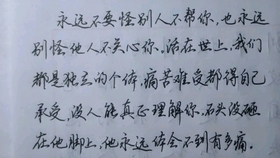 永远不要怪别人不帮你，也永远
别怪他人不关心你。活在世上，我们
都是独立的个体，痛苦难受都得自己
承受，没人能真正理解你，石头没砸
在他脚上，他永远体会不到有多痛。